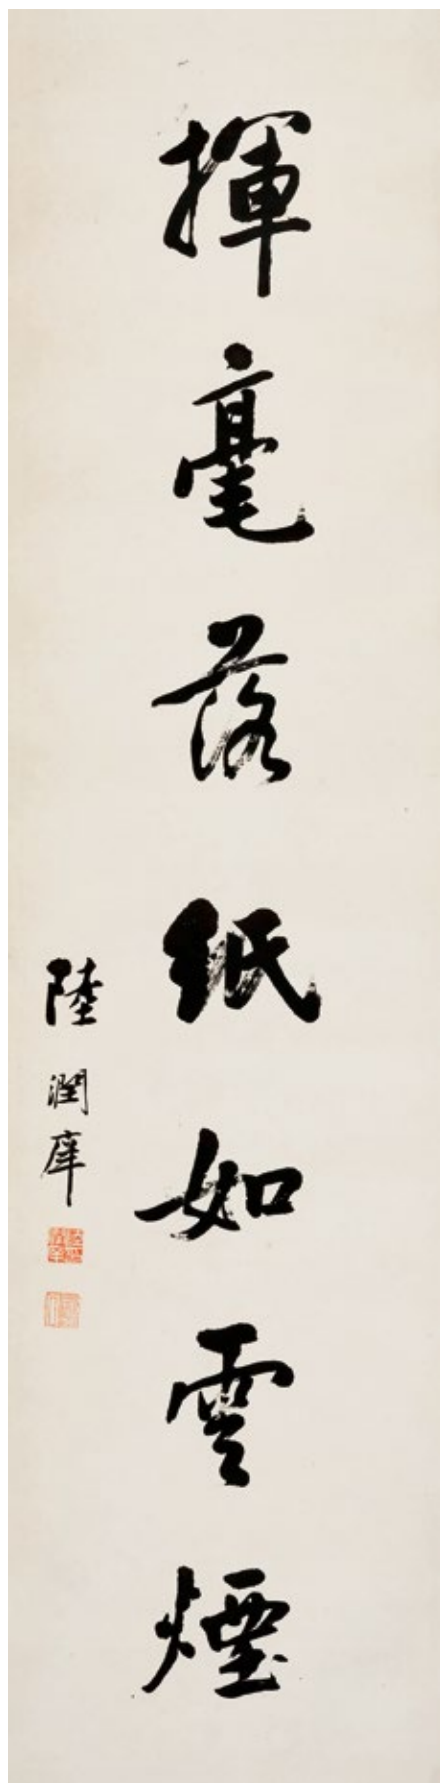 揮毫落紙如雲煙
陸潤庠